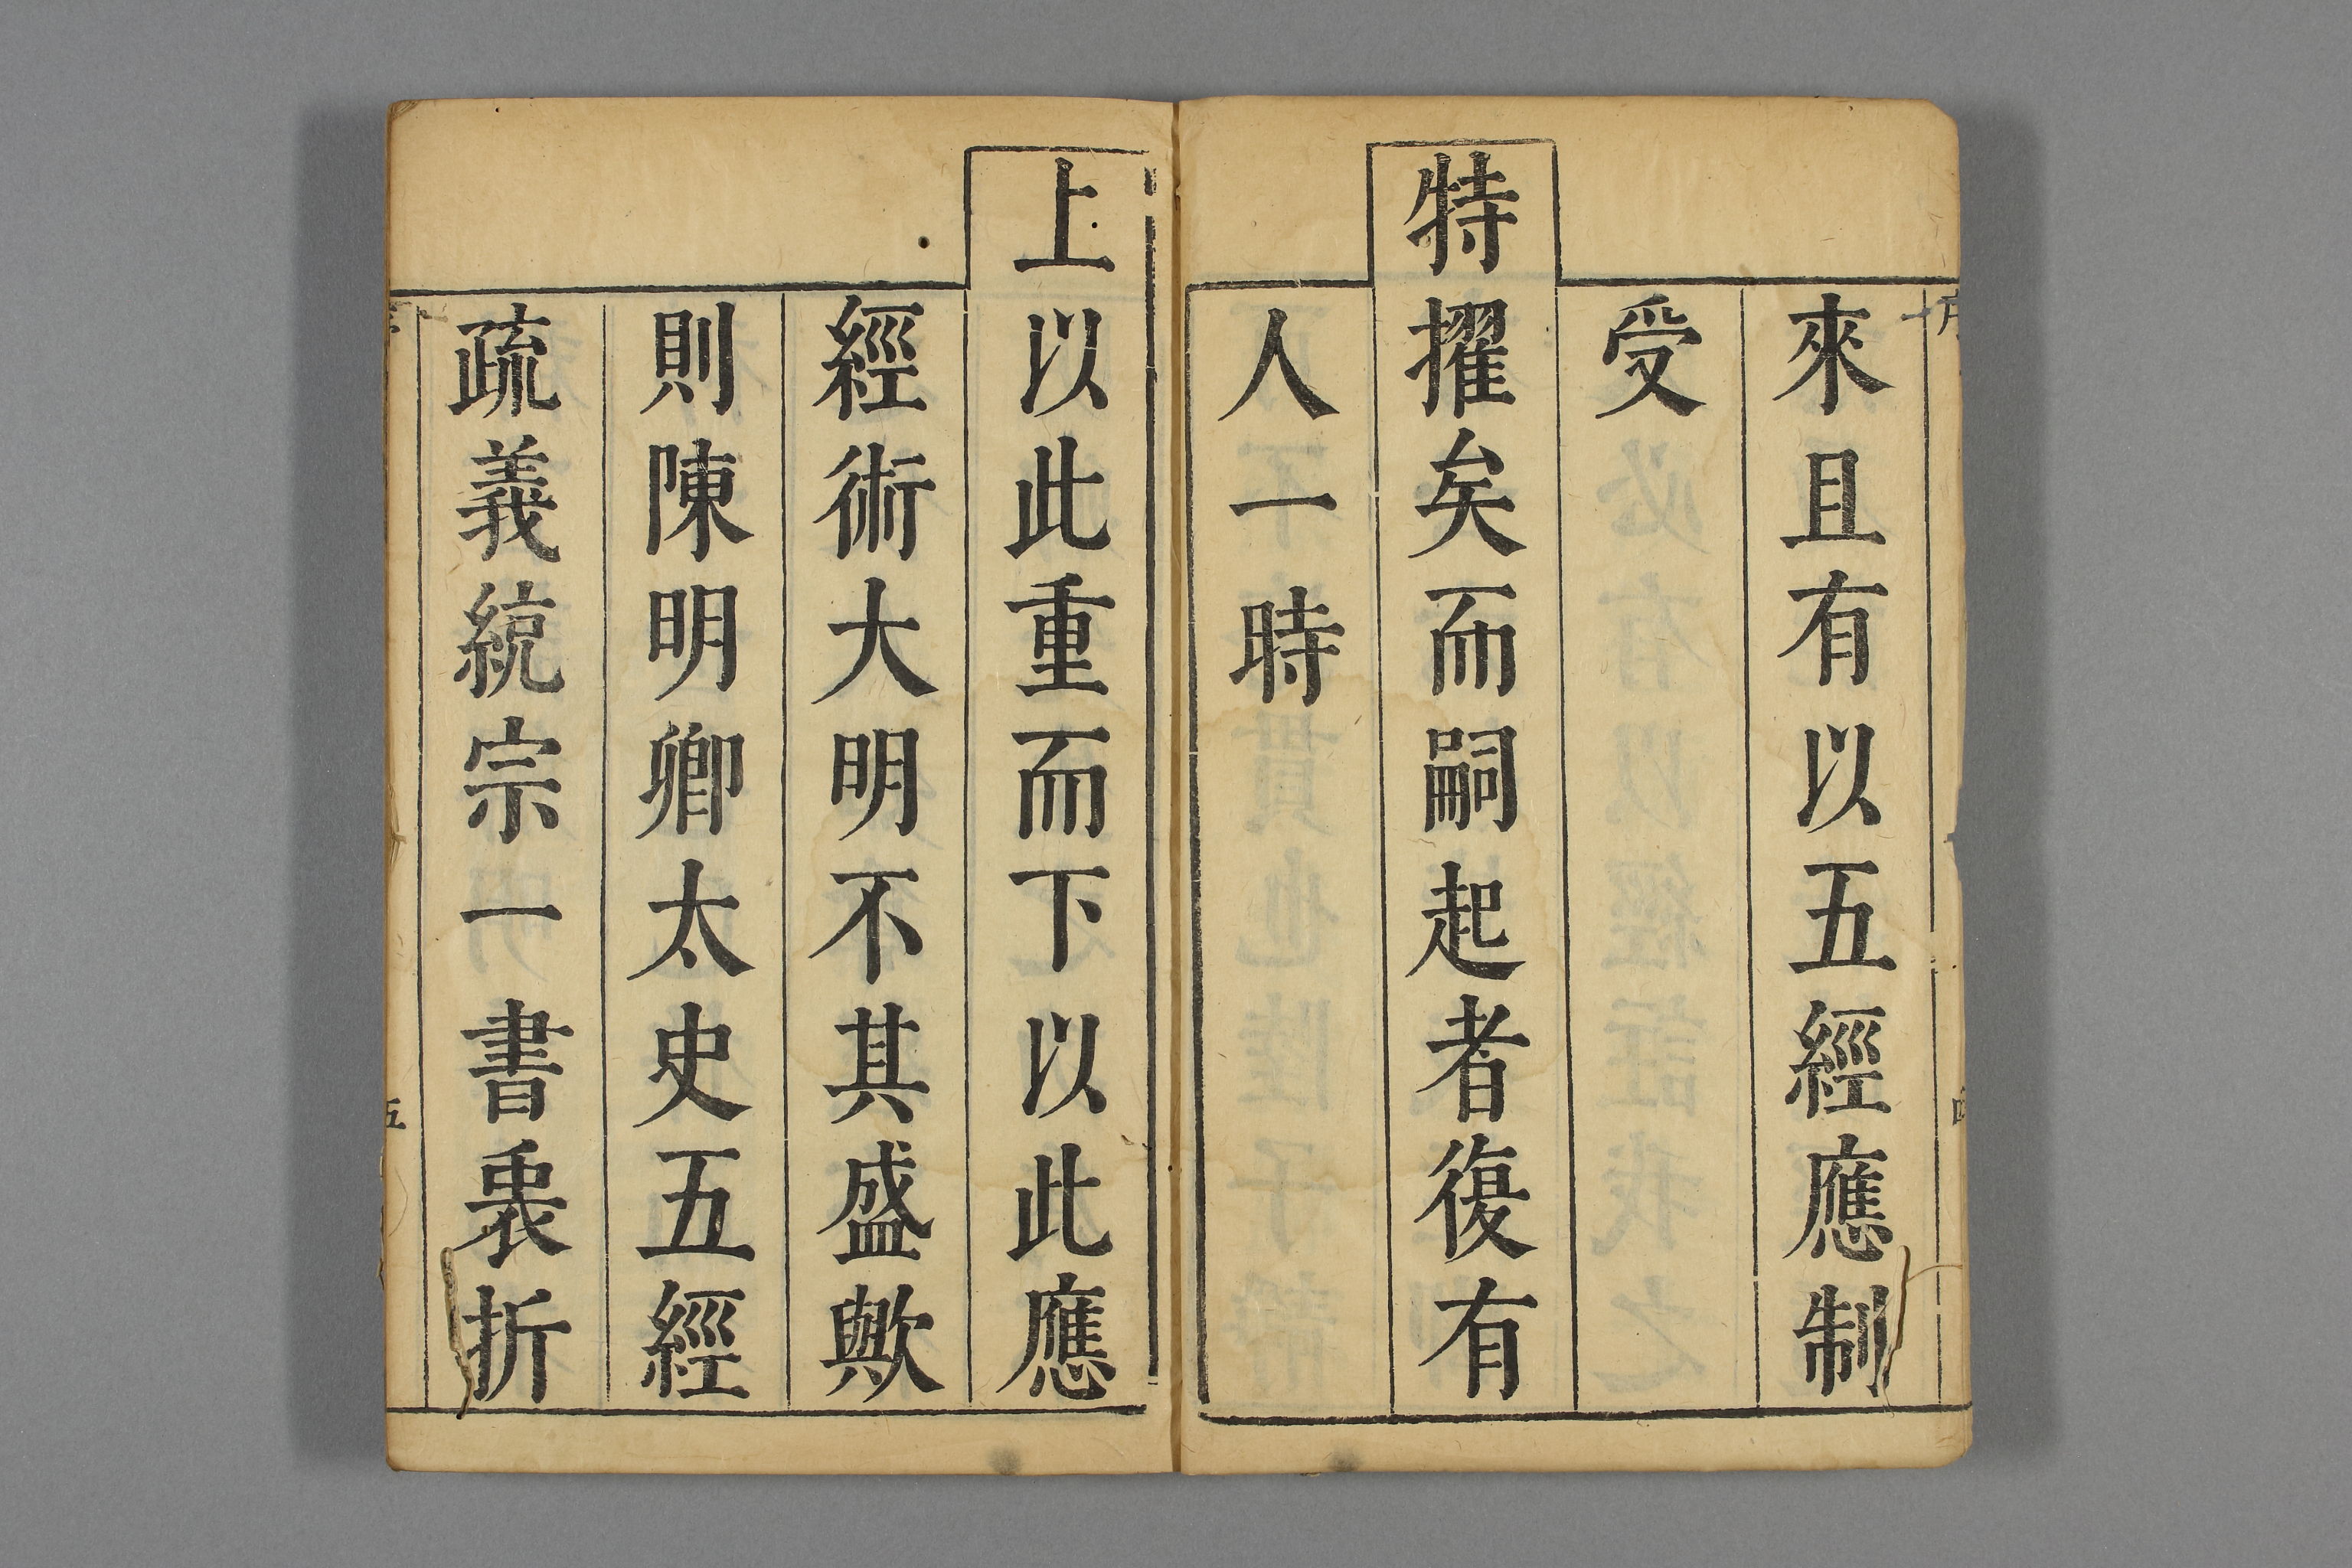 來且有以五經應制
受
特擢矣而嗣起者復有
人一時
上以此重而下以此應
經術大明不其盛歟
則陳明卿太史五經
疏義統宗一書裒折
五